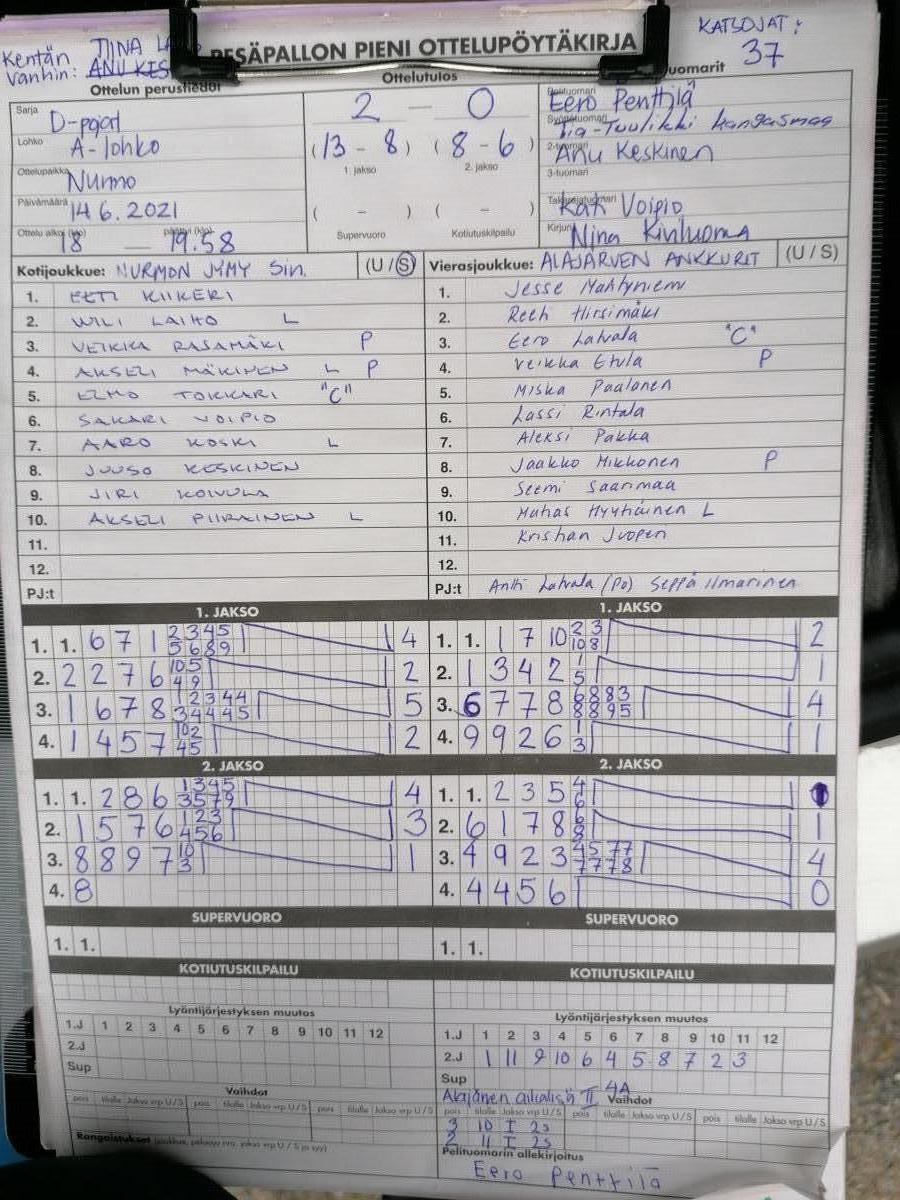 KATSOJAT:
37
Kentän TIINA
vanhin: ANU KES
PESÄPALLON PIENI OTTELUPÖYTÄKIRJA
Ottelun perustiedot
Ottelutulos
Sarja D-pojat
Lohko A-lohko
Ottelupaikka Nurmo
Päivämäärä 14.6.2021
Ottelu alkoi (klo) 18 päättyi (klo) 19.58
2 — 0
(13 - 8) (8 - 6)
1. jakso 2. jakso
( - ) ( - )
Supervuoro Kotiutuskilpailu
Eero Penttilä
Tia-Tuulikki Kangasmaa
2-tuomari Anu Keskinen
3-tuomari
Kati Voipio
Kirjuri Nina Kiviluoma
Kotijoukkue: NURMON JYMY Sin. (U / S)
1. EETI KIIKERI
2. WILI LAIHO L
3. VEIKKA RASAMÄKI P
4. AKSELI MÄKINEN L P
5. ELMO TOKKARI "C"
6. SAKARI VOIPIO
7. AARO KOSKI L
8. JUUSO KESKINEN
9. JIRI KOIVULA
10. AKSELI PIIRAINEN L
11.
12.
PJ:t
Vierasjoukkue: ALAJÄRVEN ANKKURIT (U / S)
1. Jesse Mahtyniemi
2. Reeti Hirsimäki
3. Eero Latvala "C"
4. Veikka Etula P
5. Miska Paalanen
6. Lassi Rintala
7. Aleksi Pakka
8. Jaakko Mikkonen P
9. Seemi Saarimaa
10. Hyytiäinen L
11. Juopen
12.
PJ:t Antti Latvala (Po) Seppä Ilmarinen
1. JAKSO
1. 1. 6 7 1 2 3 4 5 4
5 6 8 9
2. 2 2 7 6 10 5 2
4 9
3. 1 6 7 8 1 2 3 4 4 5
3 4 4 4 5
4. 1 4 5 7 10 2 2
4 5
1. JAKSO
1. 1. 1 7 10 2 3 2
10 8
2. 1 3 4 2 1 1
5
3. 6 7 7 8 6 8 8 3 4
8 8 9 5
4. 9 9 2 6 1 1
3
2. JAKSO
1. 1. 2 8 6 1 3 4 5 4
3 5 7 9
2. 1 5 7 6 1 2 3 3
4 5 6
3. 8 8 9 7 10 1
3
4. 8
2. JAKSO
1. 1. 2 3 5 4
6
2. 6 1 7 8 6 1
8
3. 4 9 2 3 4 5 7 7 4
7 7 7 8
4. 4 4 5 6 0
SUPERVUORO
1. 1.
SUPERVUORO
1. 1.
KOTIUTUSKILPAILU
KOTIUTUSKILPAILU
Lyöntijärjestyksen muutos
1.J 1 2 3 4 5 6 7 8 9 10 11 12
2.J
Sup
Lyöntijärjestyksen muutos
1.J 1 2 3 4 5 6 7 8 9 10 11 12
2.J 1 11 9 10 6 4 5 8 7 2 3
Sup
Vaihdot
pois tilalle Jakso vrp U / S pois tilalle Jakso vrp U / S pois tilalle Jakso vrp U / S
Rangaistukset (joukkue, pelaajan nro, jakso vrp U / S ja syy)
Alajärven aikalisä II 4A
Vaihdot
pois tilalle Jakso vrp U / S pois tilalle Jakso vrp U / S pois tilalle Jakso vrp U / S
3 10 I 2s
2 11 I 2s
Pelituomarin allekirjoitus
Eero Penttilä